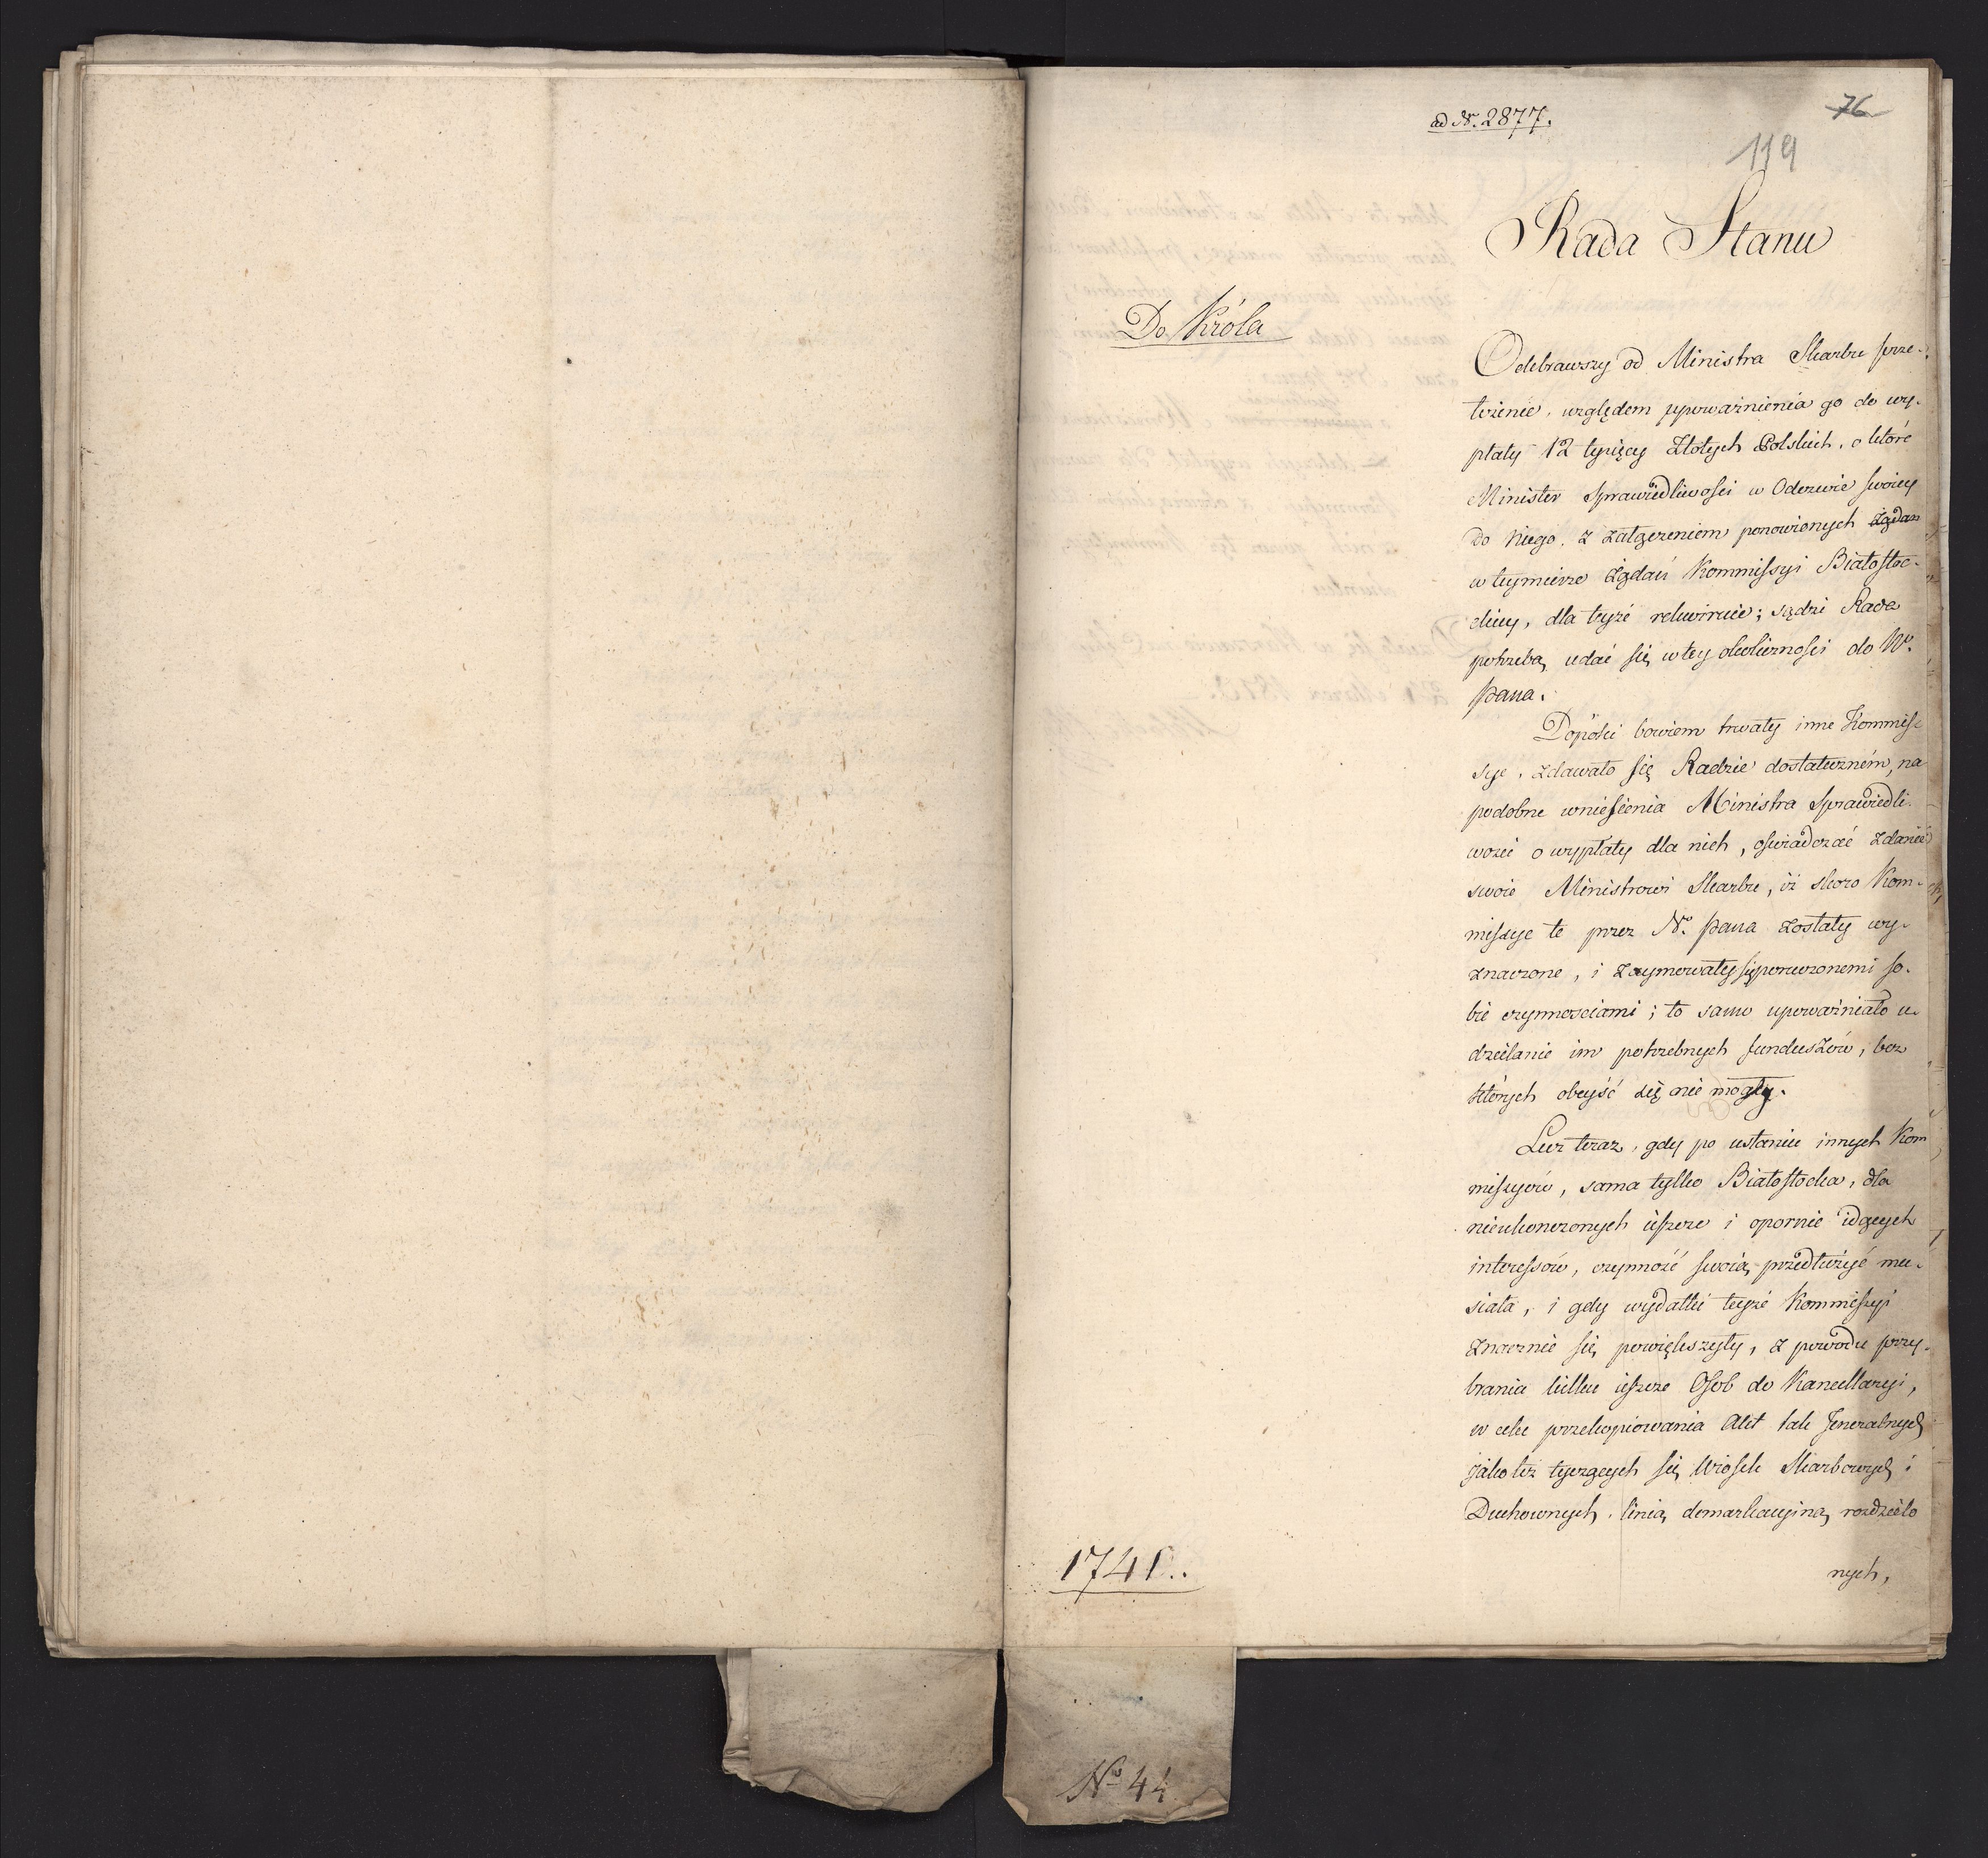 ad Nr. 2877.
76
119
Rada Stanu
Do Króla
Odebrawszy od Ministra Skarbu prze-
łożenie, względem upoważnienia go do wy-
płaty 12 tysięcy Złotych Polskich, o które
Minister Sprawiedliwości w Odezwie swoiey
do niego, z załączeniem ponowionych żądań
w teymierze żądań Kommissyi Białostoc-
kiey, dla teyże rekwiruie; sądzi Rada
potrzebą udać się w tey okoliczności do W.
Pana.
Dopóki bowiem trwały inne Kommis-
sye, zdawało się Radzie dostateczném, na
podobne wniesienia Ministra Sprawiedli-
wości o wypłaty dla nich, oświadczać zdanie
swoie Ministrowi Skarbu, iż skoro Kom-
missye te przez N. Pana zostały wy-
znaczone, i zaymowały się poruczonemi so-
bie czynnościami; to samo upoważniało u-
dzielanie im potrzebnych funduszów, bez
których obeyść się nie mogły.
Lecz teraz, gdy po ustaniu innych Kom
missyów, sama tylko Białostocka, dla
nieukończonych ieszcze i opornie idących
interessów, czynność swoią przedłużyć mu-
siała, i gdy wydatki teyże Kommissyi
znacznie się powiększyły, z powodu przy-
brania kilku ieszcze Osob do Kancellaryi,
w celu przekopiowania Akt tak Jeneralnych
jako też tyczących się Wiosek Skarbowych i
Duchownych, linią demarkacyiną rozdzielo
nych,
1741..
No 44